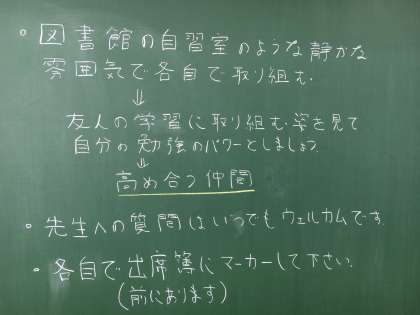 ・図書館の自習室のような静かな
雰囲気で各自で取り組む.
⇓
友人の学習に取り組む姿を見て
自分の勉強のパワーとしましょう.
⇓
高め合う仲間
・先生への質問はいつでもウェルカムです.
・各自で出席簿にマーカーして下さい.
(前にあります)